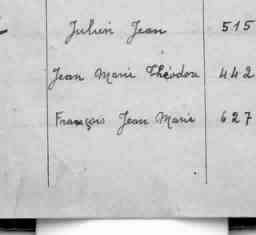 Julien Jean 515
Jean Marie Théodore 442
François Jean Marie 627